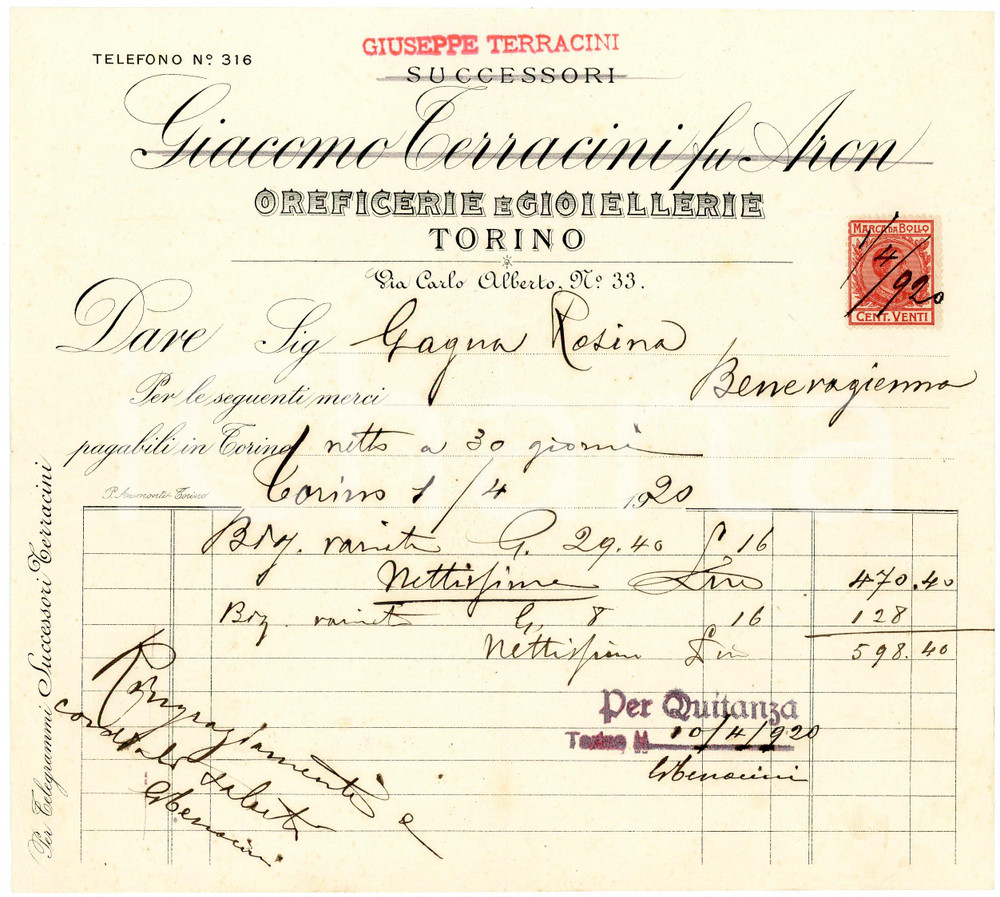 GIUSEPPE TERRACINI
TELEFONO Nº 316
SUCCESSORI
Giacomo Terracini fu Aron
OREFICERIE E GIOIELLERIE
TORINO
Via Carlo Alberto, Nº 33.
MARCA DA BOLLO
1/4/920
CENT. VENTI
Dare Sig Gagna Rosina
Benevagienna
Per le seguenti merci
pagabili in Torino netto a 30 giorni
Torino 1/4 1920
Torino
Brig. varieté G. 29.40 £ 16
Nettissime Lire 470.40
Brig. varieté G. 8 16 128
Nettissime Lire 598.40
Per Quitanza
Torino li 10/4/920
Ringraziamenti e
cordiali saluti
Per Telegrammi Successori Terracini